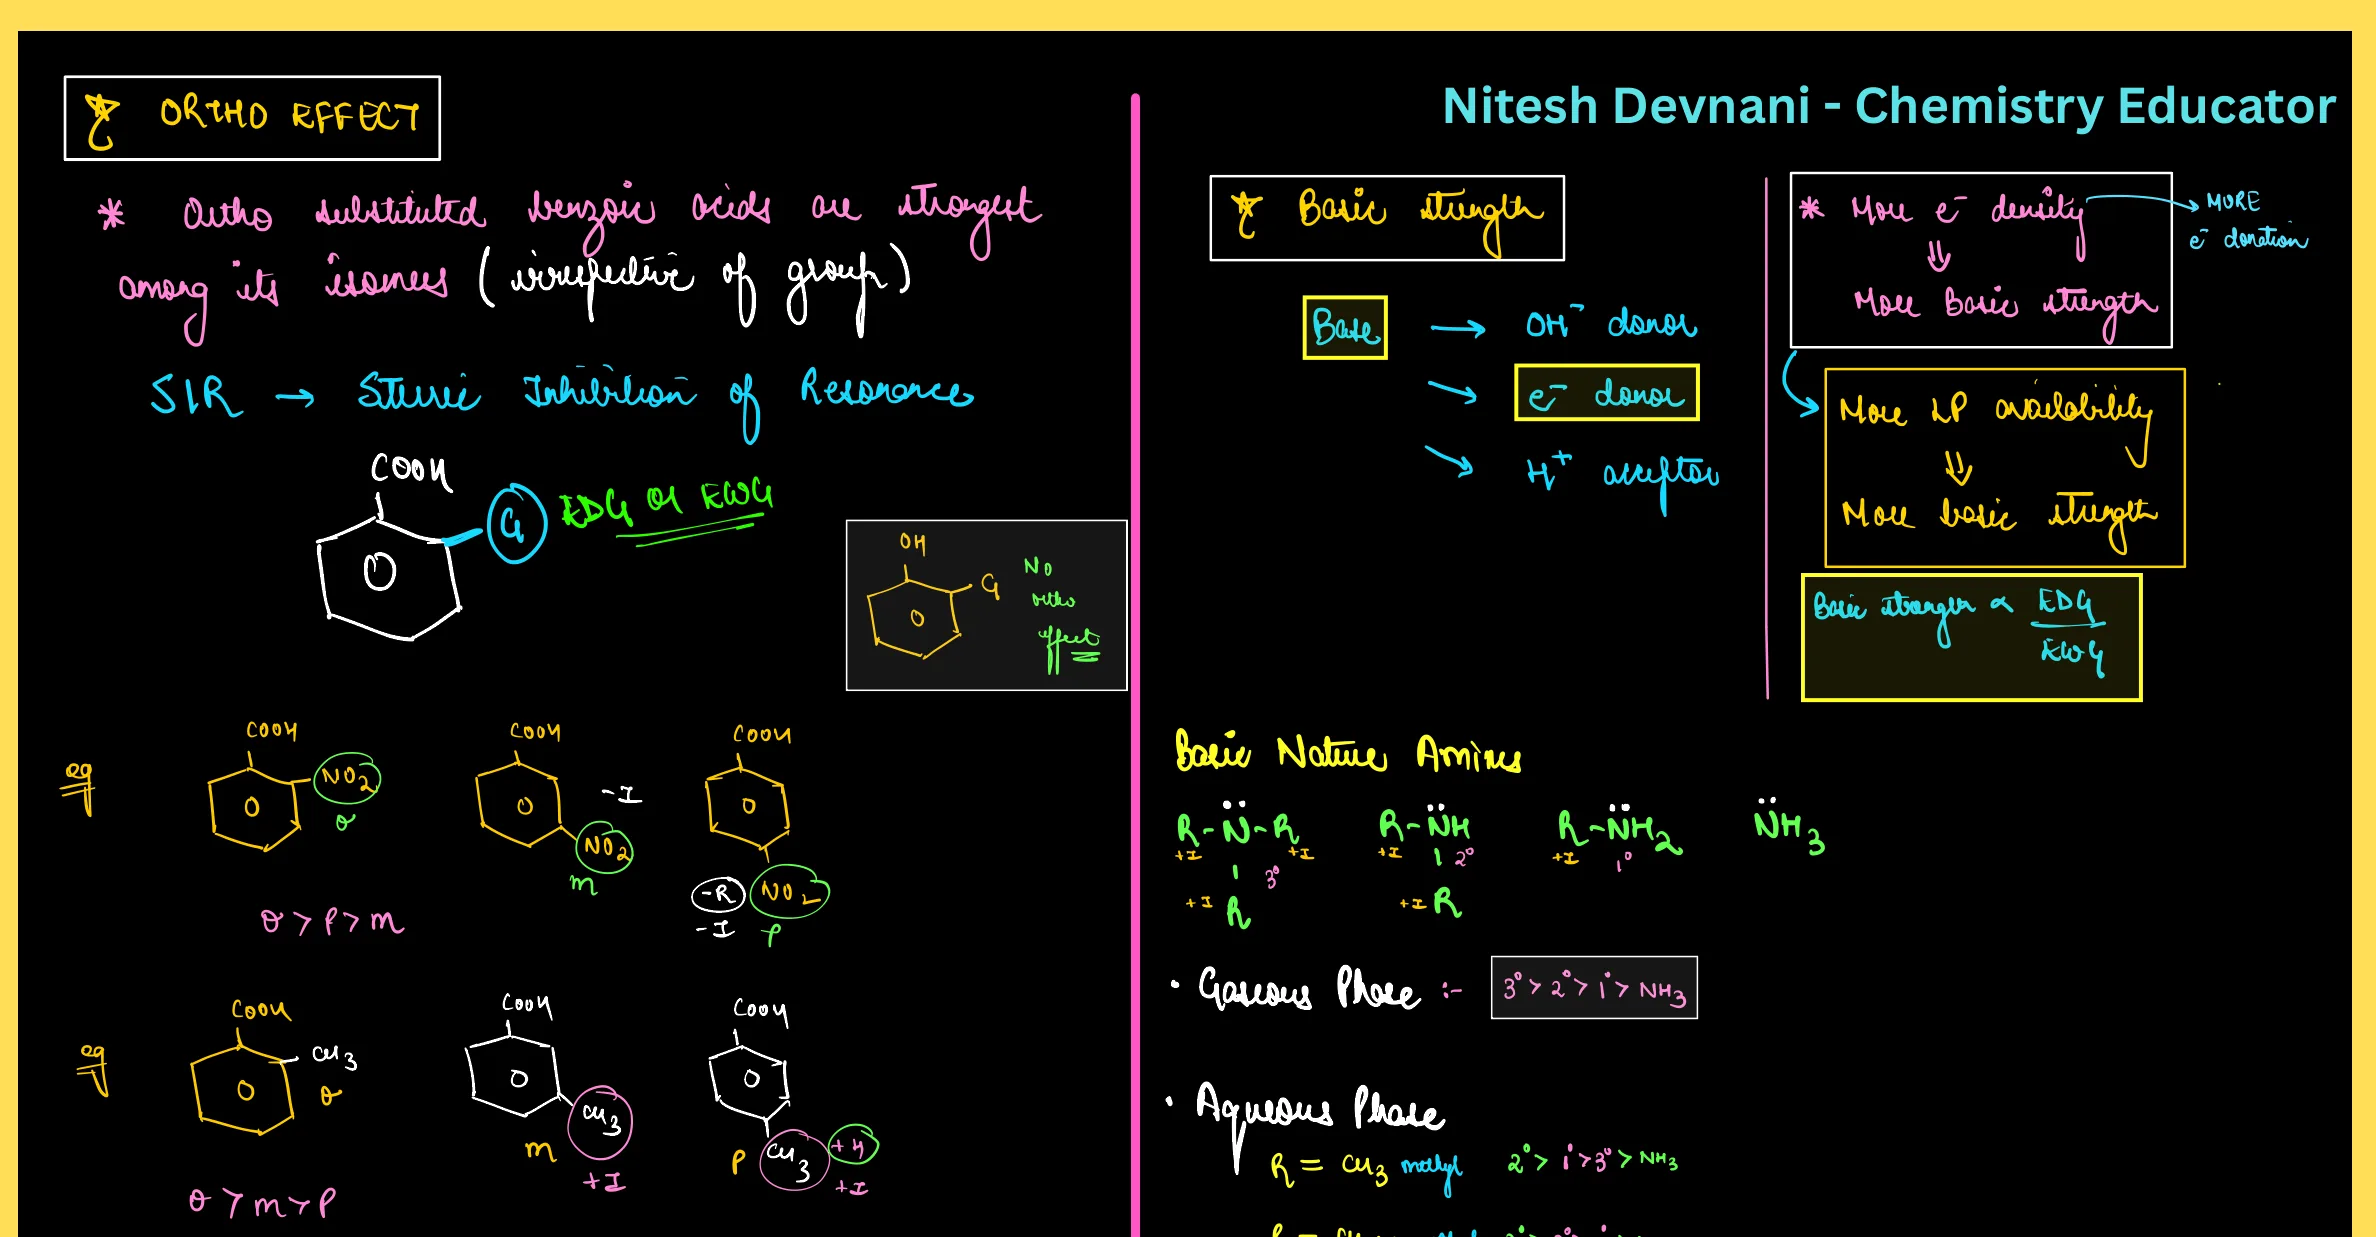 ORTHO EFFECT
* Ortho substituted benzoic acids are strongest
among its isomers (irrespective of group)
SIR → Steric Inhibition of Resonance
COOH
G
EDG or EWG
OH
G
No
ortho
effect
eg
COOH
NO2
o
COOH
-I
NO2
m
COOH
-R
NO2
-I
p
o > p > m
eg
COOH
CH3
o
COOH
CH3
m
+I
COOH
p
CH3
+H
+I
o > m > p
Nitesh Devnani - Chemistry Educator
Basic strength
Base
→ OH⁻ donor
→ e⁻ donor
→ H⁺ acceptor
* More e⁻ density → MORE
e⁻ donation
⇓
More Basic strength
More LP availability
⇓
More basic strength
Basic stronger ∝ EDG
EWG
Basic Nature Amines
R-N̈-R
+I
+I
3°
+I R
R-N̈H
+I
2°
+I R
R-N̈H2
+I
1°
N̈H3
• Gaseous Phase :- 3° > 2° > 1° > NH3
• Aqueous Phase
R = CH3 methyl 2° > 1° > 3° > NH3